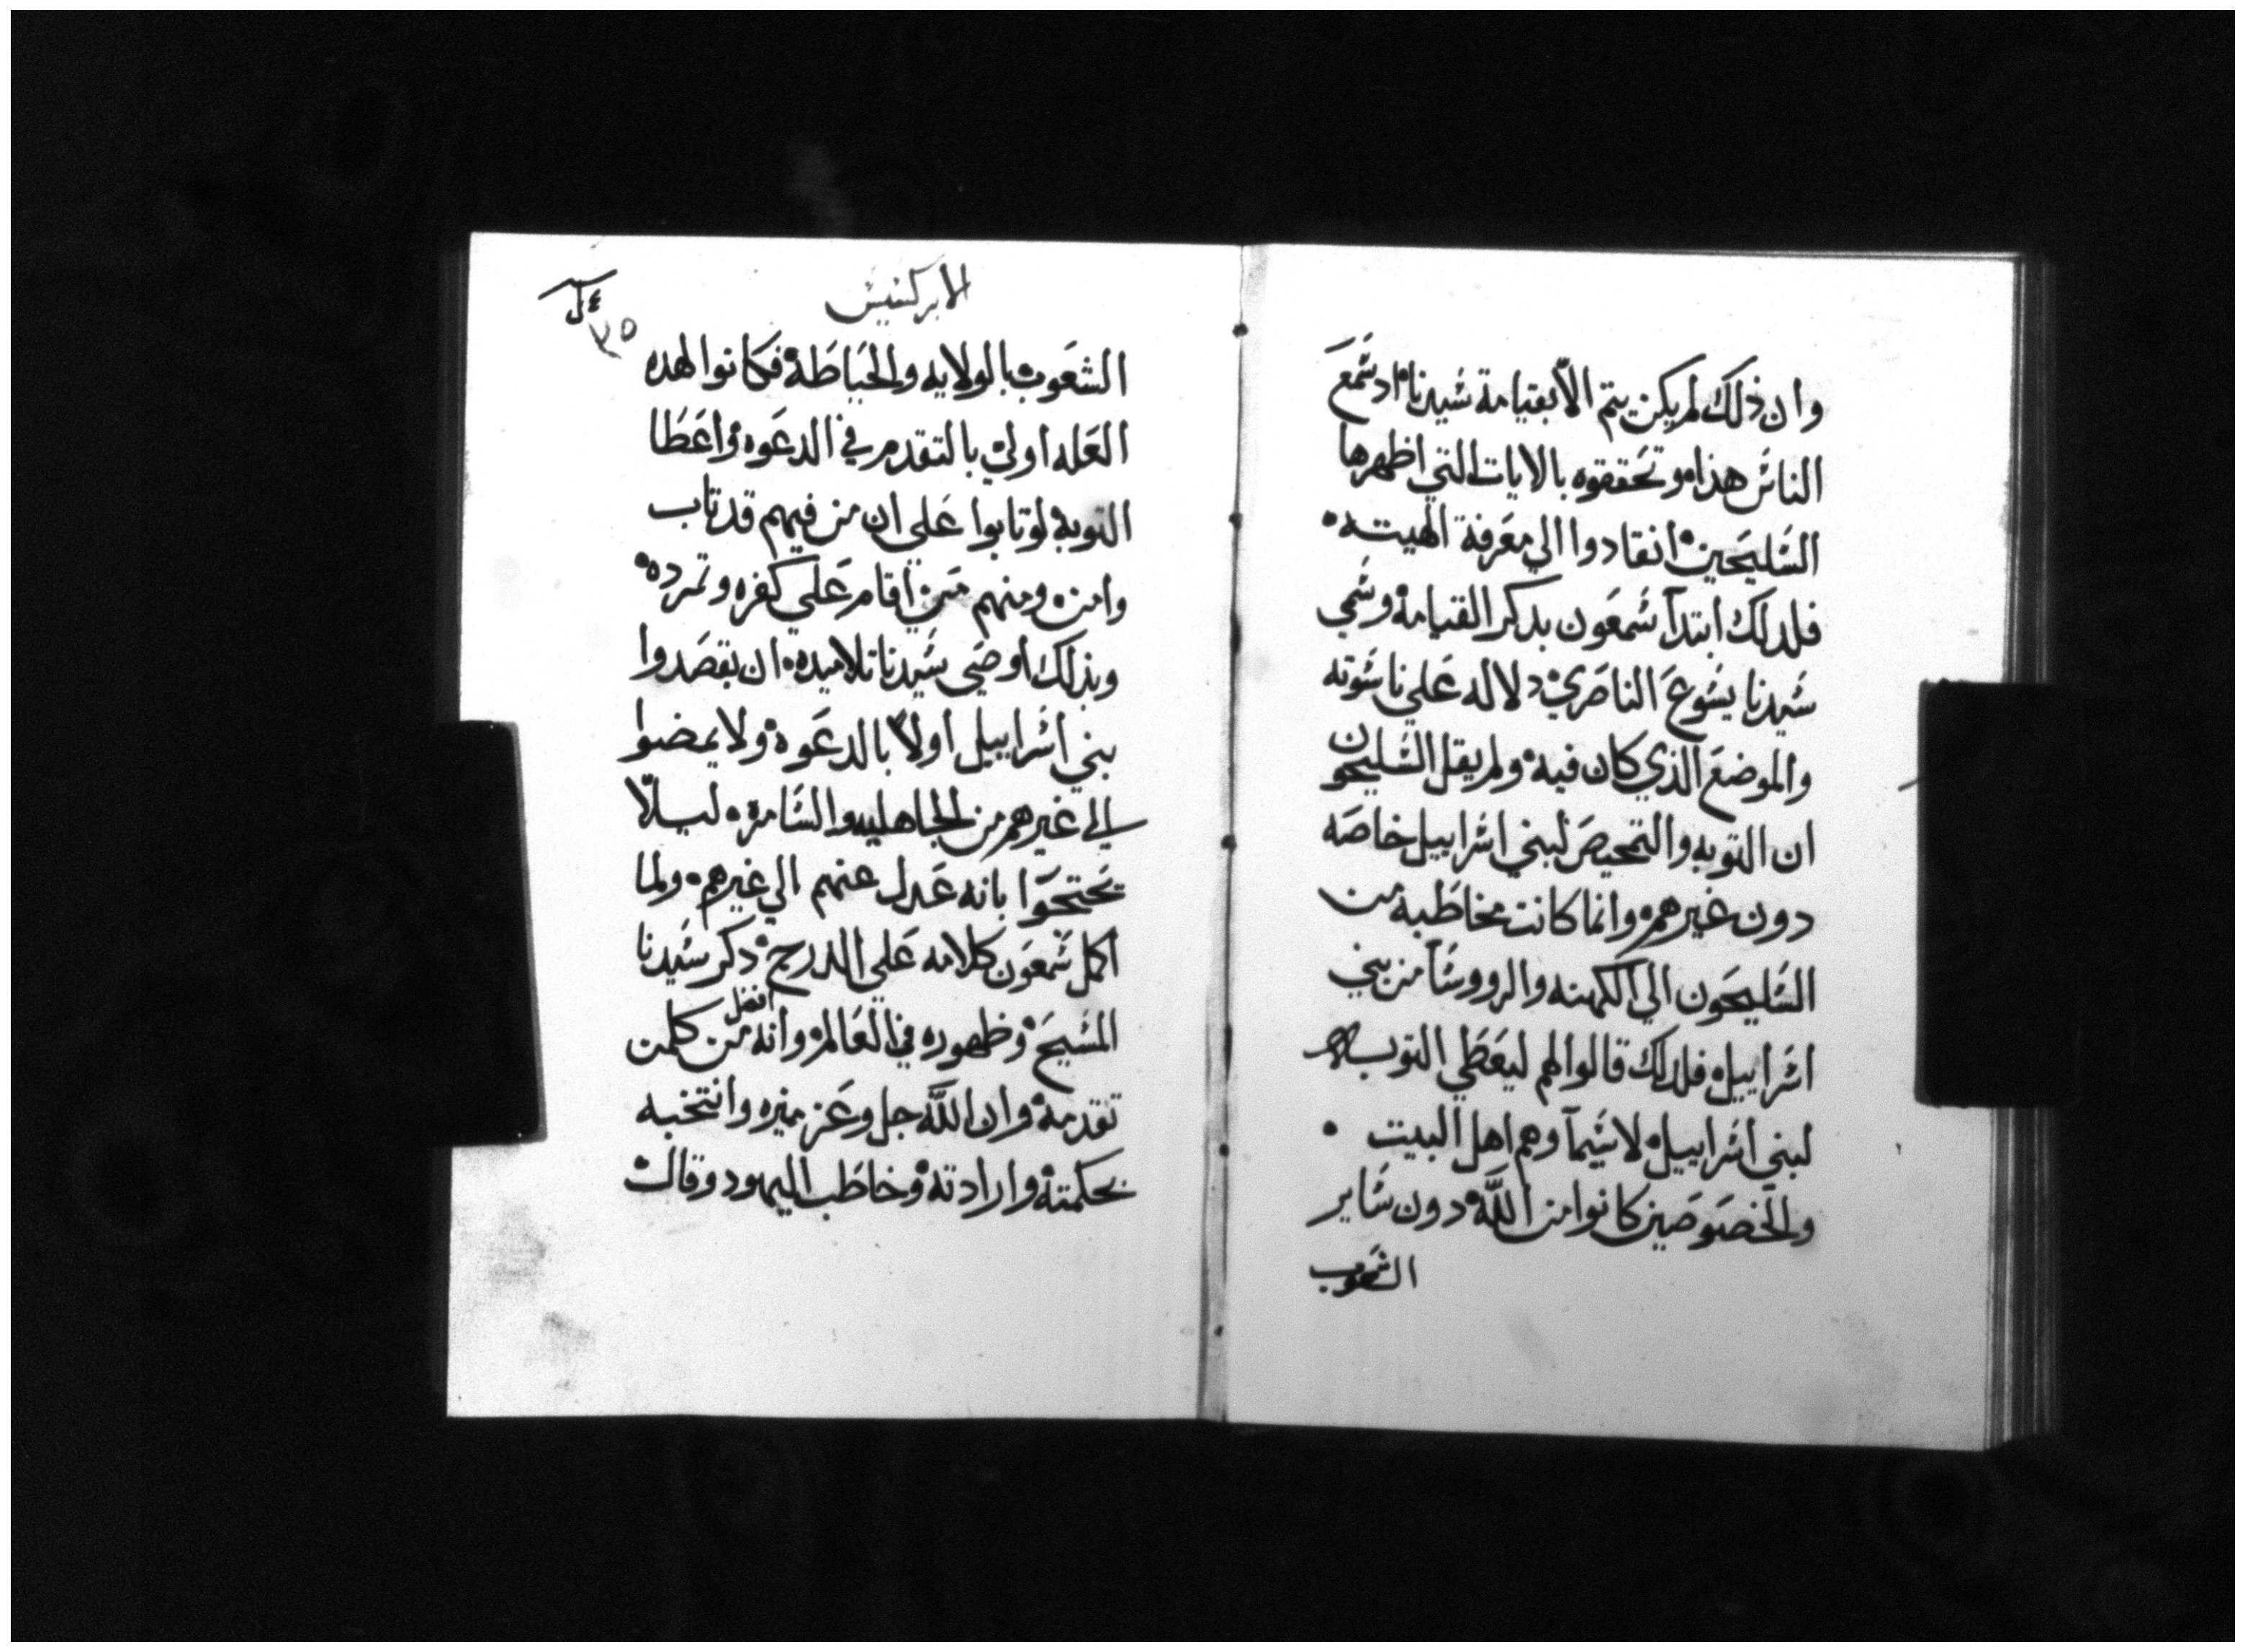 وان ذلك لم يكن يتم الا بقيامة سيدنا اد سمع
الناس هذا وتحققوه بالايات التي اظهرها
السليحين انقادوا الي معرفة الهيته
فلدلك ابتدا سمعون بدكر القيامة وسمي
سيدنا يسوع الناصري دلاله علي ناسوته
والموضع الذي كان فيه ولم يقل السليحون
ان التوبه والتمحيص لبني اسراييل خاصه
دون غيرهم وانما كانت مخاطبه من
السليحون الي الكهنه والرووسا من بني
اسراييل فلدلك قالوا لهم ليعطي التوبه
لبني اسراييل لا سيما وهم اهل البيت
والمخصوصين كانوا من الله دون ساير
الشعوب
الابركسيس
٣٥
الشعوب بالولايه والحياطة فكانوا لهده
العله اولي بالتقدم في الدعوه واعطا
التوبه لو تابوا علي ان من فيهم قد تاب
وامن ومنهم من اقام علي كفره وتمرده
وبذلك اوصي سيدنا تلاميده ان يقصدوا
بني اسراييل اولا بالدعوة ولا يمضوا
الي غيرهم من الجاهليه والسامره ليلا
تحتجوا بانه عدل عنهم الي غيرهم ولما
اكمل سمعون كلامه علي الدرج دكر سيدنا
المسيح وظهوره في العالم وانه افضل من كلمن
تقدمه وان الله جل وعز ميزه وانتخبه
بحكمته وارادته وخاطب اليهود وقال